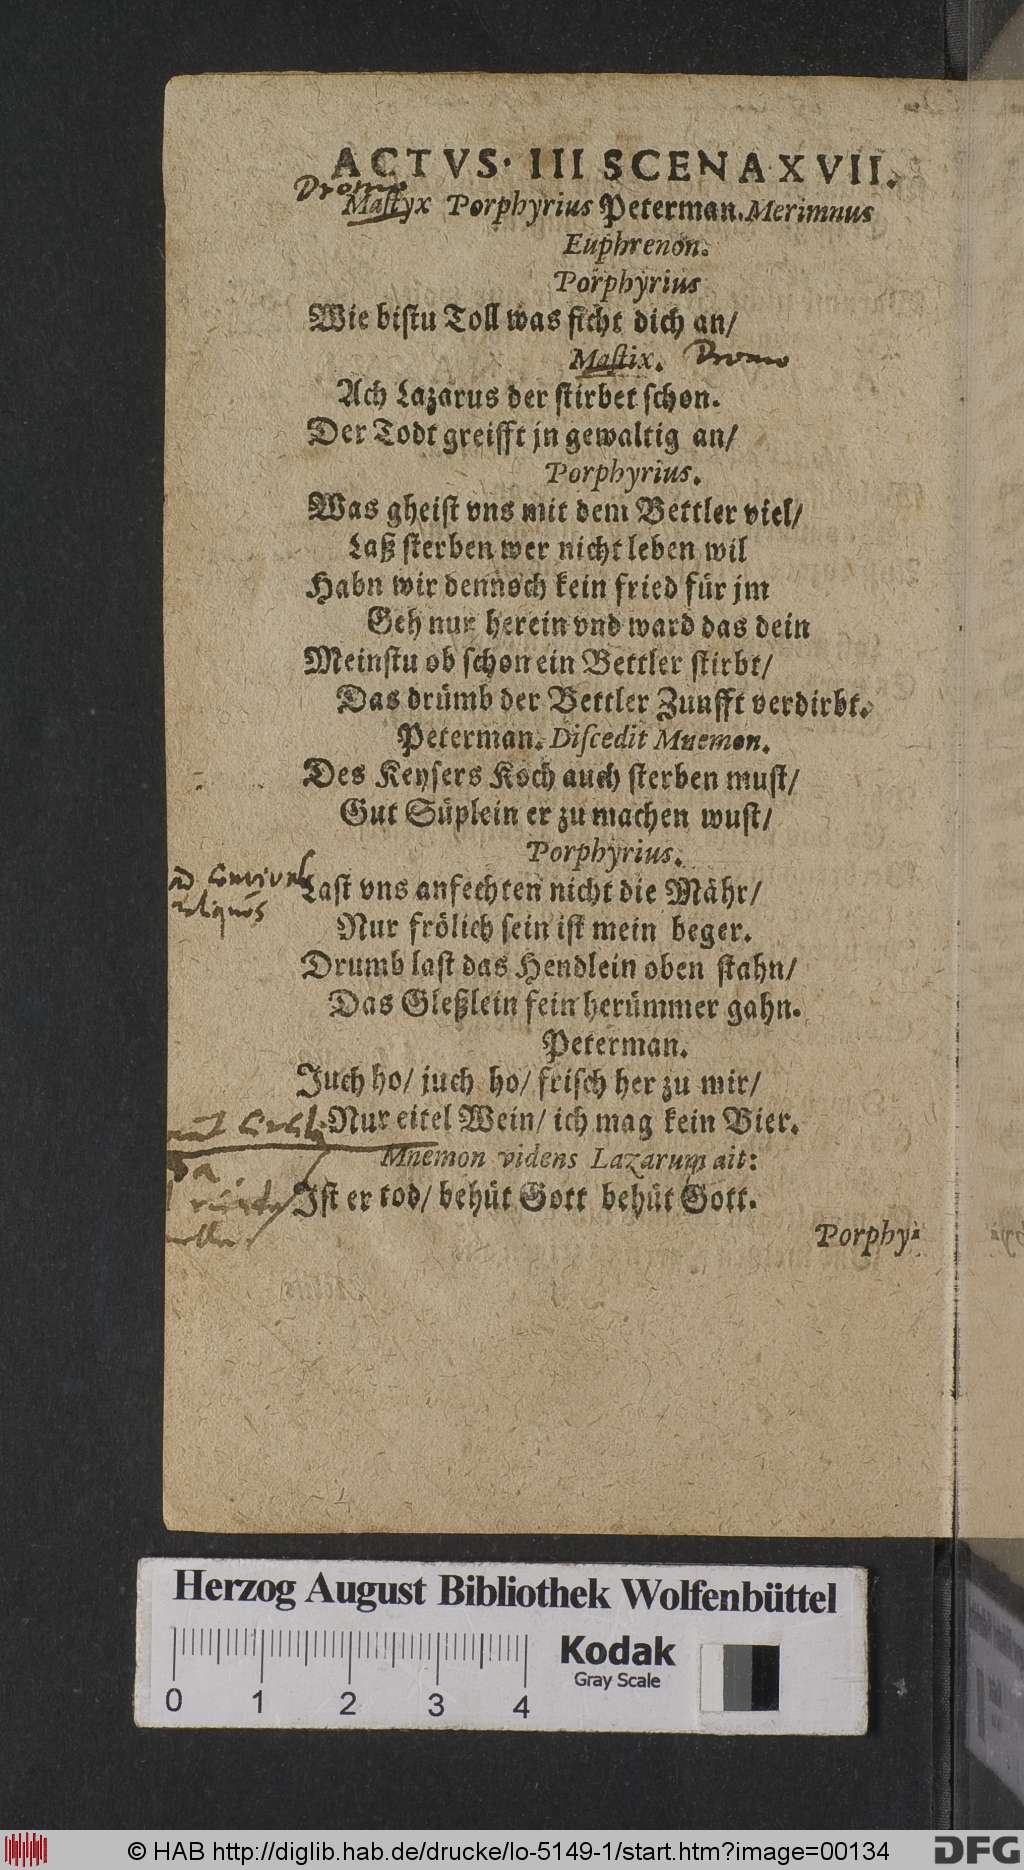 ACTVS. III SCENA XVII.
Dromo
Mastyx Porphyrius Peterman. Merimnus
Euphrenon.
Porphyrius
Wie bistu Toll was ficht dich an/
Mastix. Dromo
Ach Lazarus der stirbet schon.
Der Todt greifft jn gewaltig an/
Porphyrius.
Was gheist vns mit dem Bettler viel/
Laß sterben wer nicht leben wil
Habn wir dennoch kein fried für jm
Geh nur herein vnd ward das dein
Meinstu ob schon ein Bettler stirbt/
Das drümb der Bettler Zunfft verdirbt.
Peterman. Discedit Mnemon.
Des Keysers Koch auch sterben must/
Gut Süplein er zu machen wust/
Porphyrius.
ad
reliquos
Last vns anfechten nicht die Mähr/
Nur frölich sein ist mein beger.
Drumb last das Hendlein oben stahn/
Das Gleßlein fein herümmer gahn.
Peterman.
Juch ho/ juch ho/ frisch her zu mir/
Nur eitel Wein/ ich mag kein Bier.
Mnemon videns Lazarum ait:
Ist er tod/ behüt Gott behüt Gott.
Porphy-
Herzog August Bibliothek Wolfenbüttel
Kodak
Gray Scale
0 1 2 3 4
© HAB http://diglib.hab.de/drucke/lo-5149-1/start.htm?image=00134
DFG